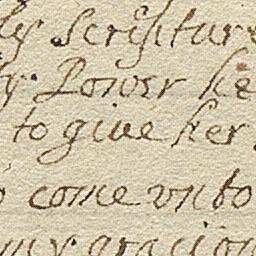 ly Scripture
ly Power ke
to giue her
come vnto
my graciou